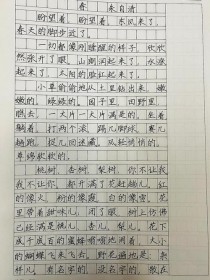 春 朱自清
盼望着，盼望着，东风来了，
春天的脚步近了。
一切都像刚睡醒的样子，欣欣
然张开了眼。山朗润起来了，水涨
起来了，太阳的脸红起来了。
小草偷偷地从土里钻出来，嫩
嫩的，绿绿的。园子里，田野里，
瞧去，一大片一大片满是的。坐着，
躺着，打两个滚，踢几脚球，赛几
趟跑，捉几回迷藏。风轻悄悄的，
草绵软软的。
桃树、杏树、梨树，你不让我，
我不让你，都开满了花赶趟儿。红
的像火，粉的像霞，白的像雪。花
里带着甜味儿，闭了眼，树上仿佛
已经满是桃儿、杏儿、梨儿。花下
成千成百的蜜蜂嗡嗡地闹着，大小
的蝴蝶飞来飞去。野花遍地是：杂
样儿，有名字的，没名字的，散在